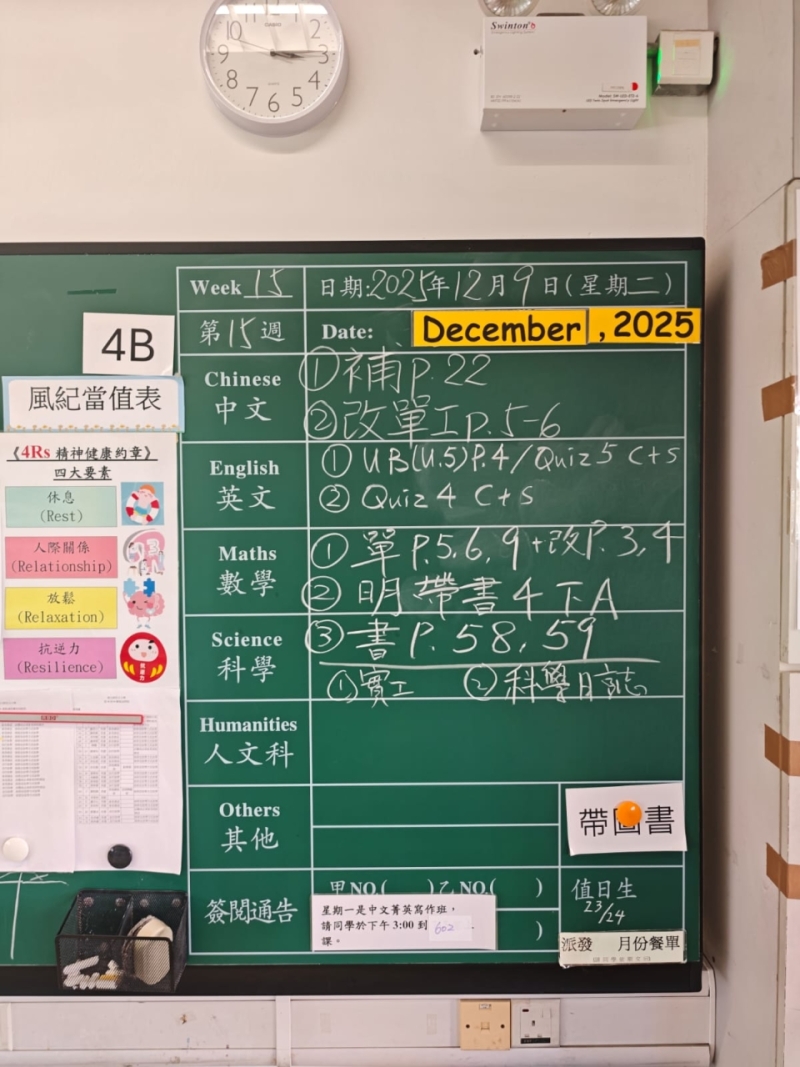 CASIO
10 9 8 7 6 5 4 3 2
Swinton
Week 15
日期:2025年12月9日(星期二)
第15週
Date:
December , 2025
4B
風紀當值表
Chinese
中文
①補P.22
②改單工P.5-6
《4Rs 精神健康約章》
四大要素
休息
(Rest)
人際關係
(Relationship)
放鬆
(Relaxation)
抗逆力
(Resilience)
English
英文
① UB(U.5)P.4/Quiz 5 C+S
② Quiz 4 C+S
Maths
數學
① 單 P.5,6,9+改P.3,4
② 明 帶書 4下A
③ 書 P.58,59
Science
科學
①實工 ②科學日誌
Humanities
人文科
Others
其他
帶圖書
簽閱通告
甲NO( )乙NO( )
)
星期一是中文菁英寫作班,
請同學於下午 3:00 到 602
課。
值日生
23/24
派發 月份餐單